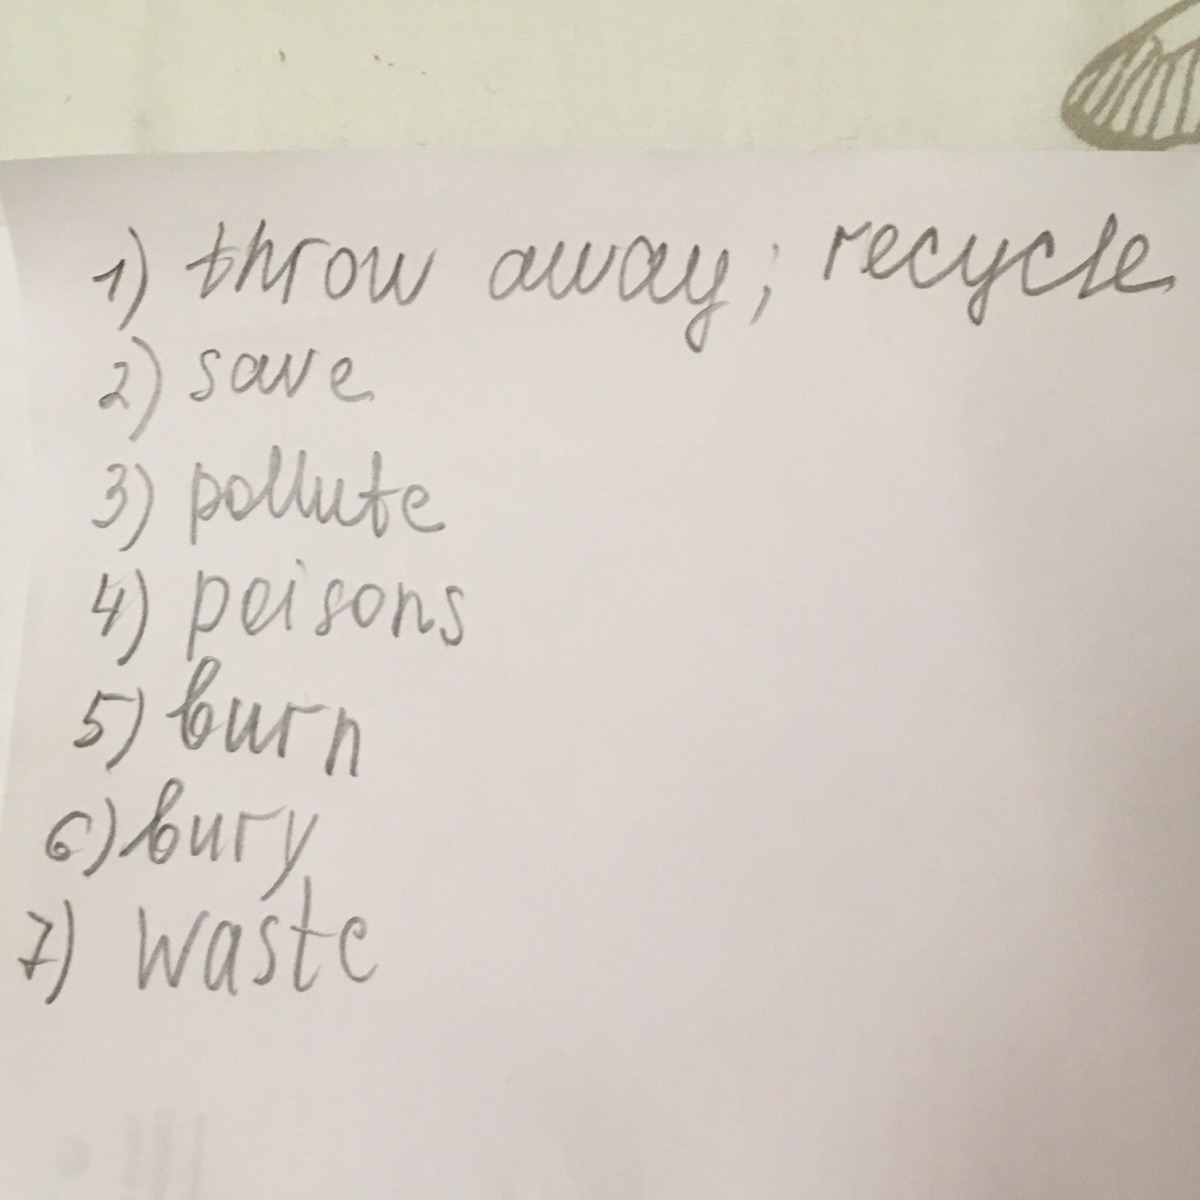 1) throw away; recycle
2) save
3) pollute
4) poisons
5) burn
6) bury
7) waste